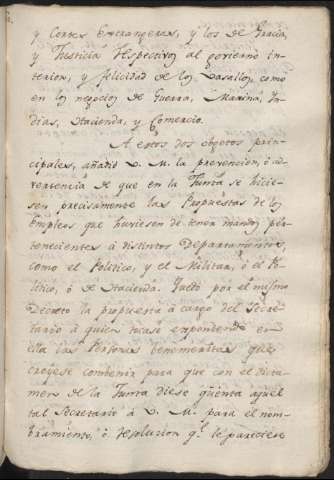 y Cortes Extrangeras, y los de Gracia,
y Justicia respectivos al govierno in-
terior, y felicidad de los Vasallos, como
en los negocios de Guerra, Marina, In-
dias, Hacienda, y Comercio.
A estos dos objetos prin-
cipales, añadió V. M. la prevencion, ó ad-
vertencia de que en la Junta se hicie-
sen precisamente las Propuestas de los
Empleos que huviesen de tener mandos per-
tenecientes á distintos Departamentos,
como el Politico, y el Militar, ó el Po-
litico, ó de Hacienda. por el mismo
Decreto la propuesta á cargo del Secre-
tario á quien tocase exponiendo en
ella las Personas benemeritas que
creyese combenir para que con el dicta-
men de la Junta diese qüenta aquel
tal Secretario á V. M. para el nom-
bramiento, ó resolucion q.e le pareciese